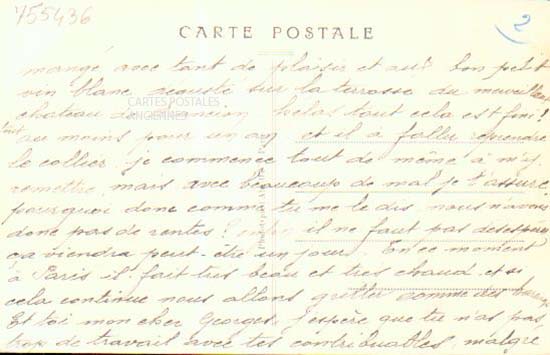 755436
2
CARTE POSTALE
mangé avec tant de plaisir et au bon petit
vin blanc dégusté sur la terrasse du merveilleux
chateau de helas tout cela est fini!
tout au moins pour un an et il a fallu reprendre
le collier. je commence tout de même à m'y
remettre mais avec beaucoup de mal je t'assure
pourquoi donc comme tu me le dis nous n'avons
donc pas de rentes? il ne faut pas désespérer
ça viendra peut-être un jour. En ce moment
à Paris il fait très beau et très chaud et si
cela continue nous allons griller comme des
Et toi mon cher Georges j'espère que tu n'as pas
trop de travail avec tes contribuables, malgré
CARTES POSTALES
ANCIENNES